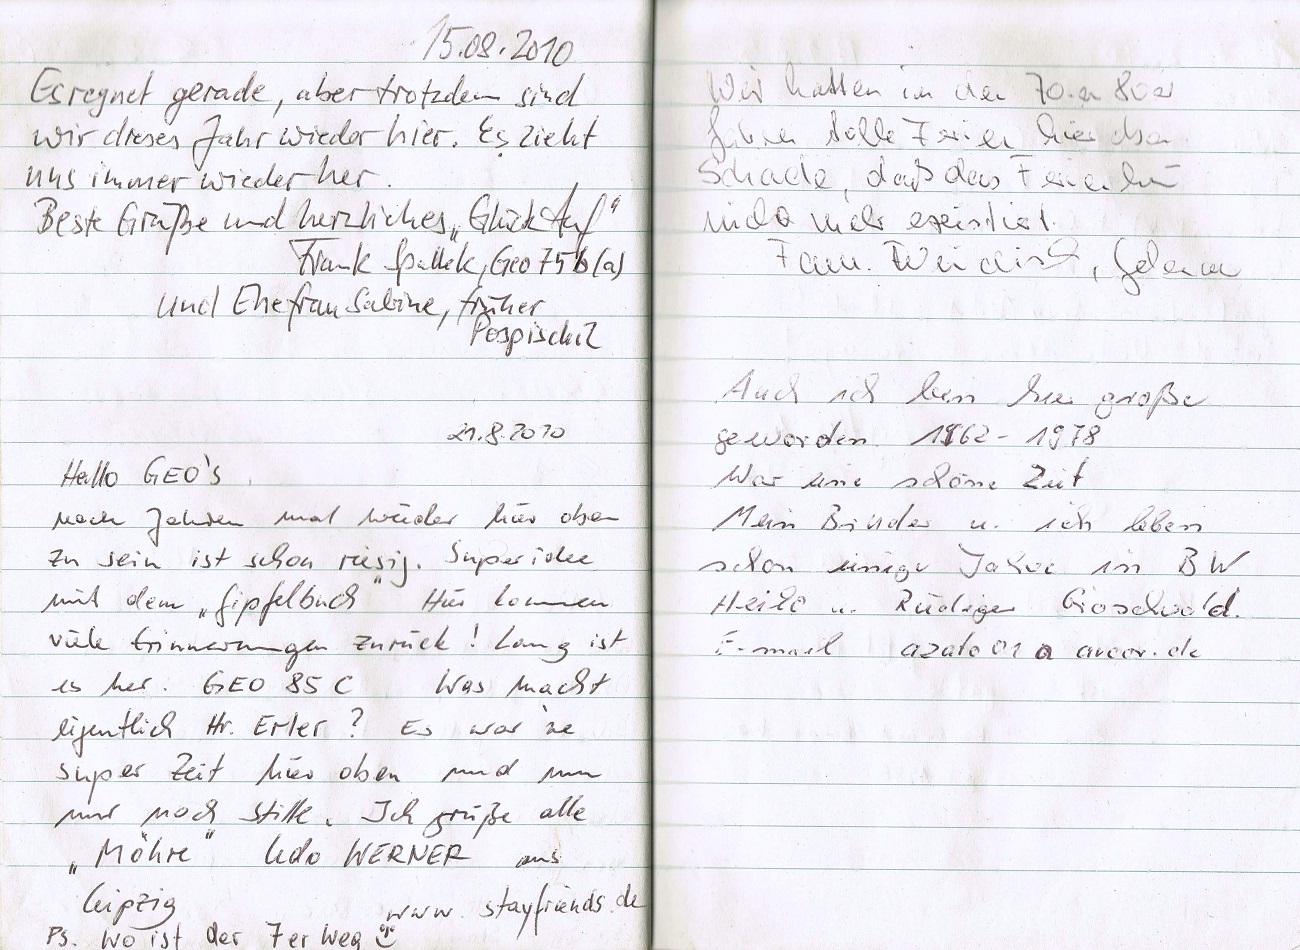 15.08.2010
Es regnet gerade, aber trotzdem sind
wir dieses Jahr wieder hier. Es zieht
uns immer wieder her.
Beste Grüße und herzliches „Glück Auf“
Frank Spallek, Geo 75 b (a)
und Ehefrau Sabine, früher
Pospischil
21.8.2010
Hallo GEO's
nach Jahren mal wieder hier oben
zu sein ist schon riesig. Superidee
mit dem „Gipfelbuch“ Hier kommen
viele Erinnerungen zurück! Lang ist
es her. GEO 85 C Was macht
eigentlich Hr. Erler? Es war 'ne
super Zeit hier oben und nun
nur noch Stille. Ich grüße alle
„Möhre“ Udo WERNER aus
Leipzig
www.stayfriends.de
Ps. Wo ist der 7er Weg
Wir hatten in den 70.er 80er
Jahren tolle Ferien hier oben
Schade, daß das
nicht mehr existiert.
Fam.
Auch ich bin hier große
geworden 1962 - 1978
War eine schöne Zeit
Mein Bruder u. ich leben
schon einige Jahre in BW
Heiko u. Rüdiger
E-mail azato01@arcor.de